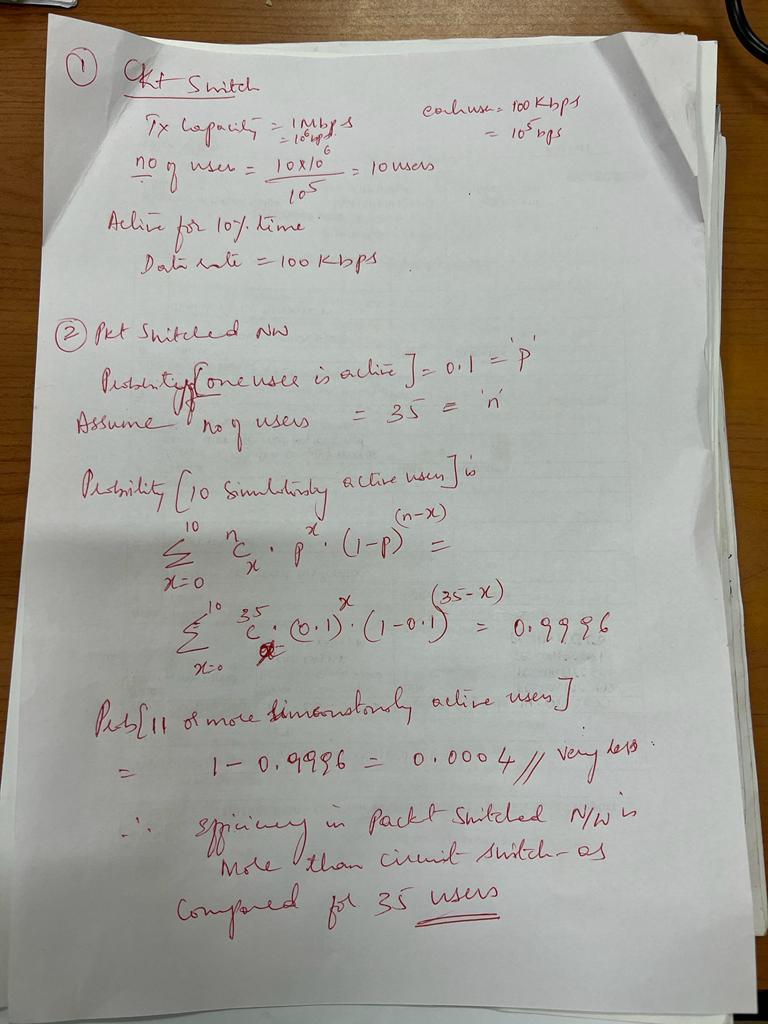 ① Ckt Switch
Tx Capacity = 1 Mbps
= 10⁶ bps.
each user = 100 Kbps
= 10⁵ bps
no of users = 10 x 10⁶ / 10⁵ = 10 users
Active for 10% time
Data rate = 100 Kbps
② Pkt Switched NW
Probability of [one user is active] = 0.1 = 'p'
Assume no of users = 35 = 'n'
Probility [10 simultously active users] is
∑ x=0 10 ⁿCₓ · pˣ · (1-p)⁽ⁿ⁻ˣ⁾ =
∑ x=0 10 ³⁵C · (0.1)ˣ · (1-0.1)⁽³⁵⁻ˣ⁾ = 0.9996
Prob[11 or more active users]
= 1 - 0.9996 = 0.0004 // very less.
∴ efficiency in Packt Switched N/W is
More than circuit switch as
Compared for 35 users